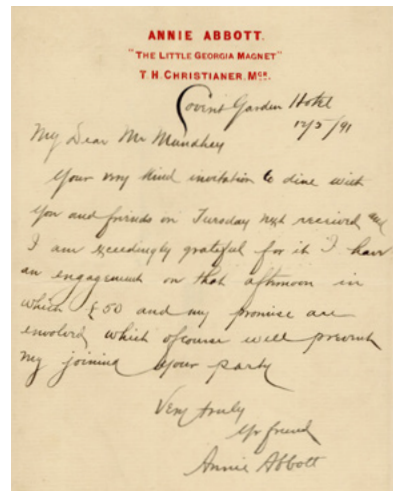 ANNIE ABBOTT.
"THE LITTLE GEORGIA MAGNET"
T. H. CHRISTIANER, MGR.
Covint Garden Hotel
12/5/91
My Dear Mr Mundhey
Your very kind invitation to dine with
you and friends on Tuesday next received and
I am exceedingly grateful for it I have
an engagement on that afternoon in
which £50 and my promise are
involved, which ofcourse will prevent
my joining your party
Very truly
Yr friend
Annie Abbott